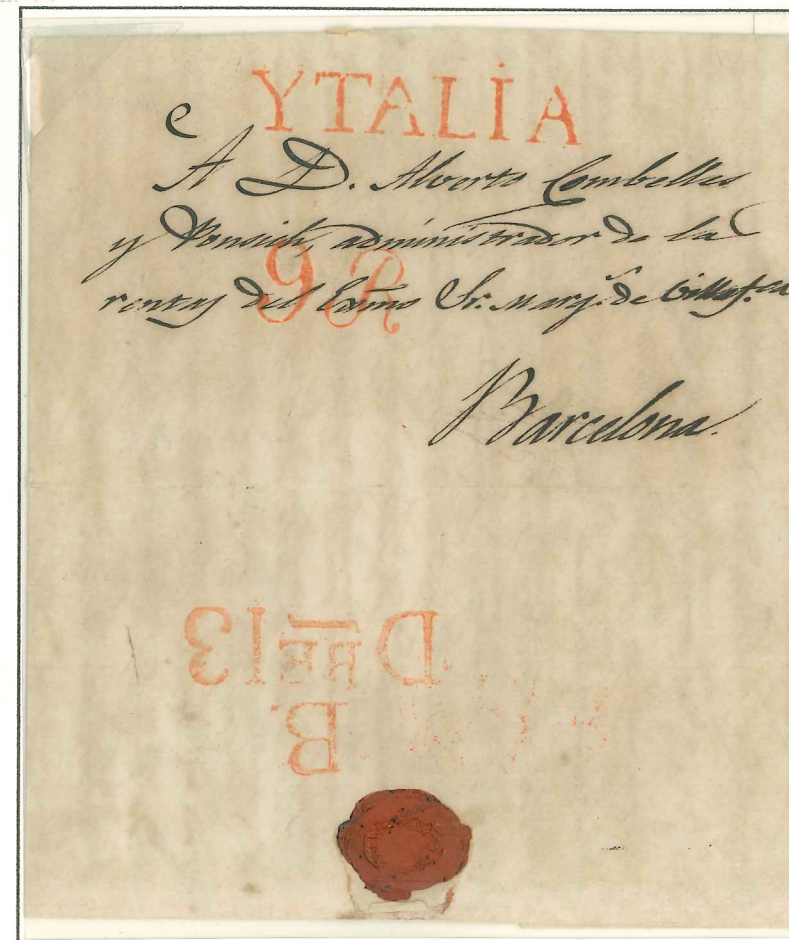 YTALİA
A D. Alverto Combelles
y Ponsich, administrador de la
9R
rentas del Exmo Sr. Marq.s de
Barcelona.
DRE 13
B.